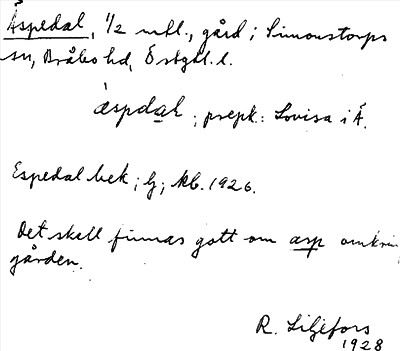 Åspedal, 1/2 mtl., gård i Simonstorps
sn, Bråbo hd, Östgtl. l.
àspdal ; prepk.: Lovisa i Å.
Espedal bek; lj; kb. 1926.
Det skall finnas gott om asp omkring
gården.
R. Liljefors
1928